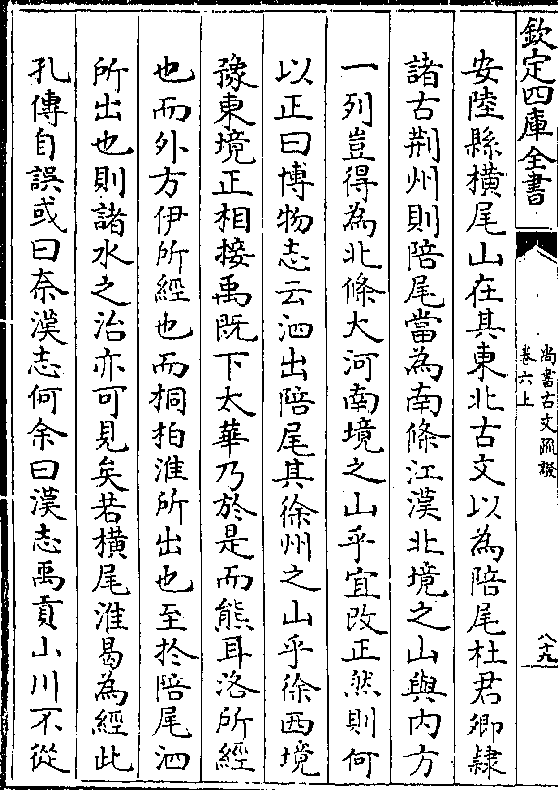 欽定四庫全書
尚書古文疏證
卷六上
八十九
安陸縣橫尾山在其東北古文以為陪尾杜君卿隸
諸古荆州則陪尾當為南條江漢北境之山與内方
一列豈得為北條大河南境之山乎宜改正然則何
以正曰博物志云泗出陪尾其徐州之山乎徐西境
豫東境正相接禹既下太華乃於是而熊耳洛所經
也而外方伊所經也而桐柏淮所出也至於陪尾泗
所出也則諸水之治亦可見矣若橫尾淮曷為經此
孔傳自誤或曰奈漢志何余曰漢志禹貢山川不從